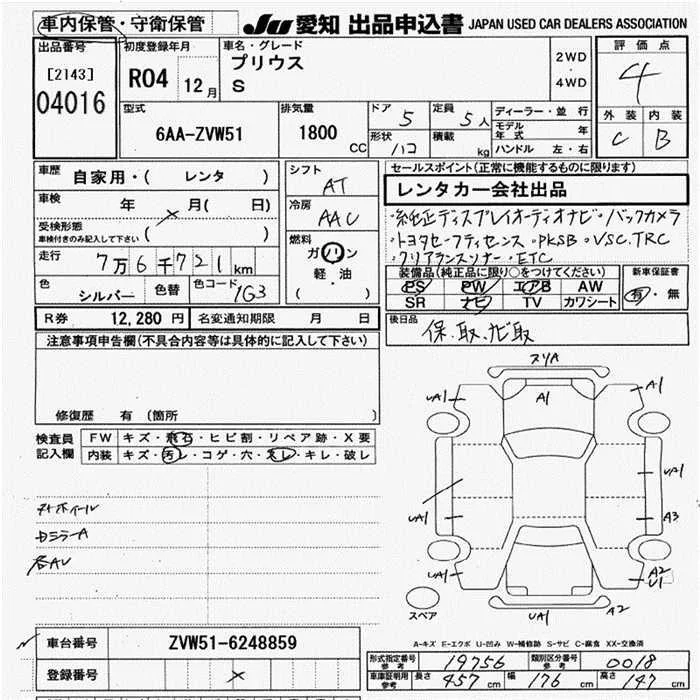 車内保管・守衛保管
JU 愛知 出品申込書 JAPAN USED CAR DEALERS ASSOCIATION
出品番号 [2143] 04016
初度登録年月 R04 12月
車名・グレード プリウス S
2WD・4WD
評価点 4
外装 C 内装 B
型式 6AA-ZVW51
排気量 1800 CC
ドア 5 形状 ハコ
定員 5人 積載 kg
ディーラー・並行
モデル年式 年
ハンドル 左・右
車歴 自家用・( レンタ )
車検 年 月( 日)
受検形態 ( )
車検付きのみ記入して下さい
走行 7万6千721km
色 シルバー 色替 色コード 1G3
シフト AT
冷房 AAC
燃料 ガソリン 軽・油 ( )
セールスポイント(正常に機能するものに限ります)
レンタカー会社出品
・純正ディスプレイオーディオナビ・バックカメラ
・トヨタセーフティセンス・PKSB・VSC.TRC
・クリアランスソナー・ETC
装備品(純正品に限り○をつけてください)
PS PW エアB AW
SR ナビ TV カワシート
新車保証書 有・無
R券 12,280円 名変通知期限 月 日
後日品 保.取.ナビ取
注意事項申告欄(不具合内容等は具体的に記入して下さい)
修復歴 有 (箇所 )
検査員記入欄
FW キズ・飛石・ヒビ割・リペア跡・X要
内装 キズ・汚レ・コゲ・穴・スレ・キレ・破レ
ナナホイール
DミラーA
各AU
スリA
A1
UA1
A1
UA1
UA1
A3
UA1
A2
U1
UA1
A2
スペア
A-キズ E-エクボ U-凹み W-補修跡 S-サビ C-腐食 XX-交換済
車台番号 ZVW51-6248859
登録番号
形式指定番号 参考 19756 類別区分番号 参考 0018
車庫証明用 参考 長さ 457cm 幅 176cm 高さ 147cm